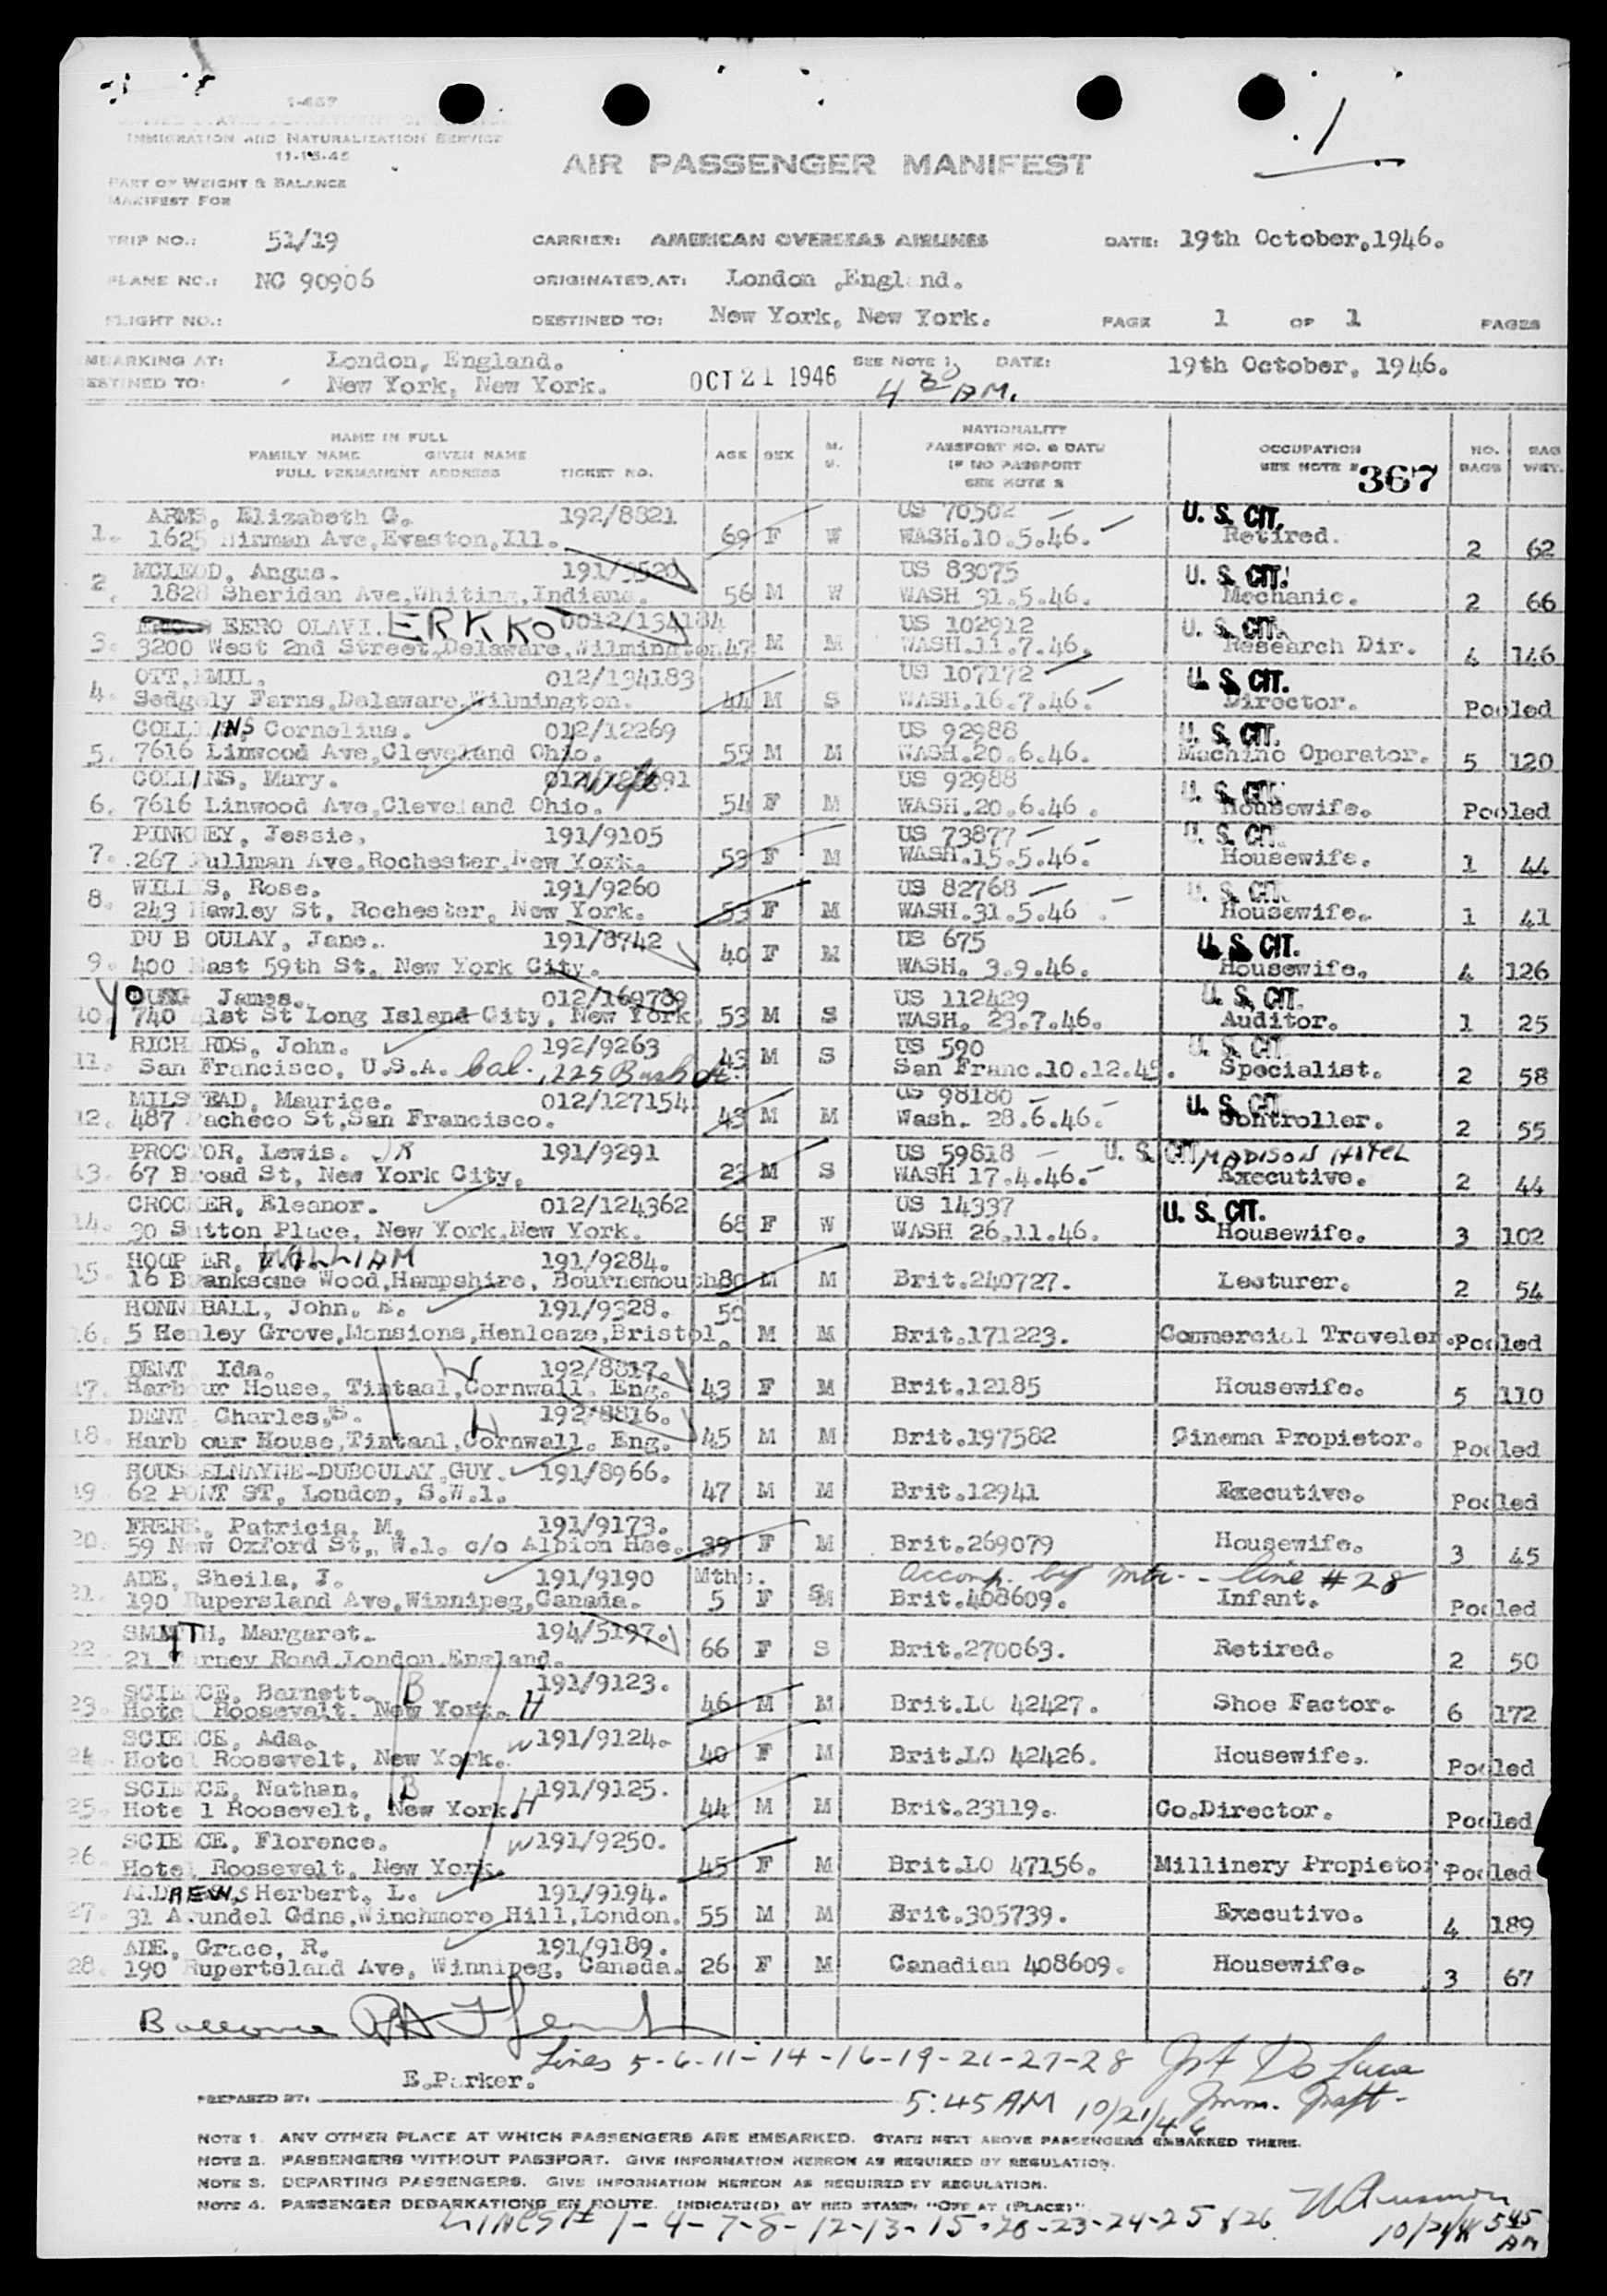 1-467
IMMIGRATION AND NATURALIZATION SERVICE
11-15-45
PART OF WEIGHT & BALANCE
MANIFEST FOR
AIR PASSENGER MANIFEST
1
TRIP NO.: 51/19 CARRIER: AMERICAN OVERSEAS AIRLINES DATE: 19th October, 1946.
PLANE NO.: NC 90906 ORIGINATED AT: London, England.
FLIGHT NO.: DESTINED TO: New York, New York. PAGE 1 OF 1 PAGES
EMBARKING AT: London, England. SEE NOTE 1. DATE: 19th October, 1946.
DESTINED TO: New York, New York. OCT 21 1946 4 30 AM.
NAME IN FULL
FAMILY NAME GIVEN NAME
FULL PERMANENT ADDRESS TICKET NO. AGE SEX M. S. NATIONALITY PASSPORT NO. & DATE IF NO PASSPORT SEE NOTE 2 OCCUPATION SEE NOTE 2 367 NO. BAGS BAG WGT.
ARMS, Elizabeth G. 192/8821 US 70502 U. S. CIT.
1. 1625 Hinman Ave, Evaston, Ill. 69 F W WASH.10.5.46. Retired. 2 62
MCLEOD, Angus. 191/9520 US 83075 U. S. CIT.
2. 1828 Sheridan Ave, Whiting, Indiana. 56 M W WASH 31.5.46. Mechanic. 2 66
EERO OLAVI. ERKKO 0012/134184 US 102912 U. S. CIT.
3. 3200 West 2nd Street, Delaware, Wilmington 47 M M WASH.11.7.46. Research Dir. 4 146
OTT, EMIL. 012/134183 US 107172 U. S. CIT.
4. Sedgely Farns, Delaware, Wilmington. 44 M S WASH.16.7.46. Director. Pooled
COLLINS Cornelius. 012/12269 US 92988 U. S. CIT.
5. 7616 Linwood Ave, Cleveland Ohio. 55 M M WASH.20.6.46. Machine Operator. 5 120
COLLINS, Mary. wife US 92988 U. S. CIT.
6. 7616 Linwood Ave, Cleveland Ohio. 54 F M WASH.20.6.46. Housewife. Pooled
PINKNEY, Jessie. 191/9105 US 73877 U. S. CIT.
7. 267 Pullman Ave, Rochester, New York. 53 F M WASH.15.5.46. Housewife. 1 44
WILLIS, Rose. 191/9260 US 82768 U. S. CIT.
8. 243 Hawley St, Rochester, New York. 53 F M WASH.31.5.46. Housewife. 1 41
DU BOULAY, Jane. 191/8742 US 675 U. S. CIT.
9. 400 East 59th St, New York City. 40 F M WASH. 3.9.46. Housewife. 4 126
YOUNG James. 012/169789 US 112429 U. S. CIT.
10. 740 41st St Long Island City, New York. 53 M S WASH. 23.7.46. Auditor. 1 25
RICHARDS, John. 192/9263 US 590 U. S. CIT.
11. San Francisco, U.S.A. Cal. 225 Bush St. 43 M S San Franc.10.12.45. Specialist. 2 58
MILSTEAD, Maurice. 012/127154 US 98180 U. S. CIT.
12. 487 Pacheco St, San Francisco. 43 M M Wash. 28.6.46. Controller. 2 55
PROCTOR, Lewis. JR 191/9291 US 59818 U. S. CIT. MADISON HOTEL
13. 67 Broad St, New York City. 23 M S WASH 17.4.46. Executive. 2 44
CROCKER, Eleanor. 012/124362 US 14337 U. S. CIT.
14. 30 Sutton Place, New York, New York. 68 F W WASH 26.11.46. Housewife. 3 102
HOOPER, WILLIAM 191/9284.
15. 16 Branksome Wood, Hampshire, Bournemouth 80 M M Brit.240727. Lecturer. 2 54
HONNIBALL, John, E. 191/9328. 50
16. 5 Henley Grove, Mansions, Henleaze, Bristol. M M Brit.171223. Commercial Traveler. Pooled
DENT Ida. W 192/8817.
17. Harbour House, Tintaal, Cornwall. Eng. 43 F M Brit.12185 Housewife. 5 110
DENT, Charles, S. H 192/8816.
18. Harbour House, Tintaal, Cornwall. Eng. 45 M M Brit.197582 Cinema Propietor. Pooled
ROUSSELNAYNE-DUBOULAY, GUY. 191/8966.
19. 62 PONT ST, London, S.W.1. 47 M M Brit.12941 Executive. Pooled
FRERE, Patricia, M. 191/9173.
20. 59 New Oxford St, W.1. c/o Albion Hse. 39 F M Brit.269079 Housewife. 3 45
ADE, Sheila, J. 191/9190 Mths. Accomp. by mtr. - line #28
21. 190 Rupersland Ave, Winnipeg, Canada. 5 F S Brit.408609. Infant. Pooled
SMYTH, Margaret. 194/5197.
22. 21 Turney Road London England. 66 F S Brit.270063. Retired. 2 50
SCIENCE, Barnett. B 191/9123.
23. Hotel Roosevelt, New York. H 46 M M Brit.LO 42427. Shoe Factor. 6 172
SCIENCE, Ada. W 191/9124.
24. Hotel Roosevelt, New York. 40 F M Brit.LO 42426. Housewife. Pooled
SCIENCE, Nathan. B 191/9125.
25. Hotel Roosevelt, New York. H 44 M M Brit.23119. Co.Director. Pooled
SCIENCE, Florence. W 191/9250.
26. Hotel Roosevelt, New York. 45 F M Brit.LO 47156. Millinery Propietor. Pooled
ANDREWS, Herbert, L. 191/9194.
27. 31 Arundel Gdns, Winchmore Hill, London. 55 M M Brit.305739. Executive. 4 189
ADE, Grace, R. 191/9189.
28. 190 Rupertsland Ave, Winnipeg, Canada. 26 F M Canadian 408609. Housewife. 3 67
Lines 5-6-11-14-16-19-21-27-28
E.Parker.
PREPARED BY: 5:45 AM 10/21/46
NOTE 1. ANY OTHER PLACE AT WHICH PASSENGERS ARE EMBARKED. STATE NEXT ABOVE PASSENGERS EMBARKED THERE.
NOTE 2. PASSENGERS WITHOUT PASSPORT. GIVE INFORMATION HEREON AS REQUIRED BY REGULATION.
NOTE 3. DEPARTING PASSENGERS. GIVE INFORMATION HEREON AS REQUIRED BY REGULATION.
NOTE 4. PASSENGER DEBARKATIONS EN ROUTE. INDICATE(D) BY RED STAMP "OFF AT (PLACE)"
LINES # 1-4-7-8-12-13-15-20-23-24-25 & 26
10/21/46 5 45 AM